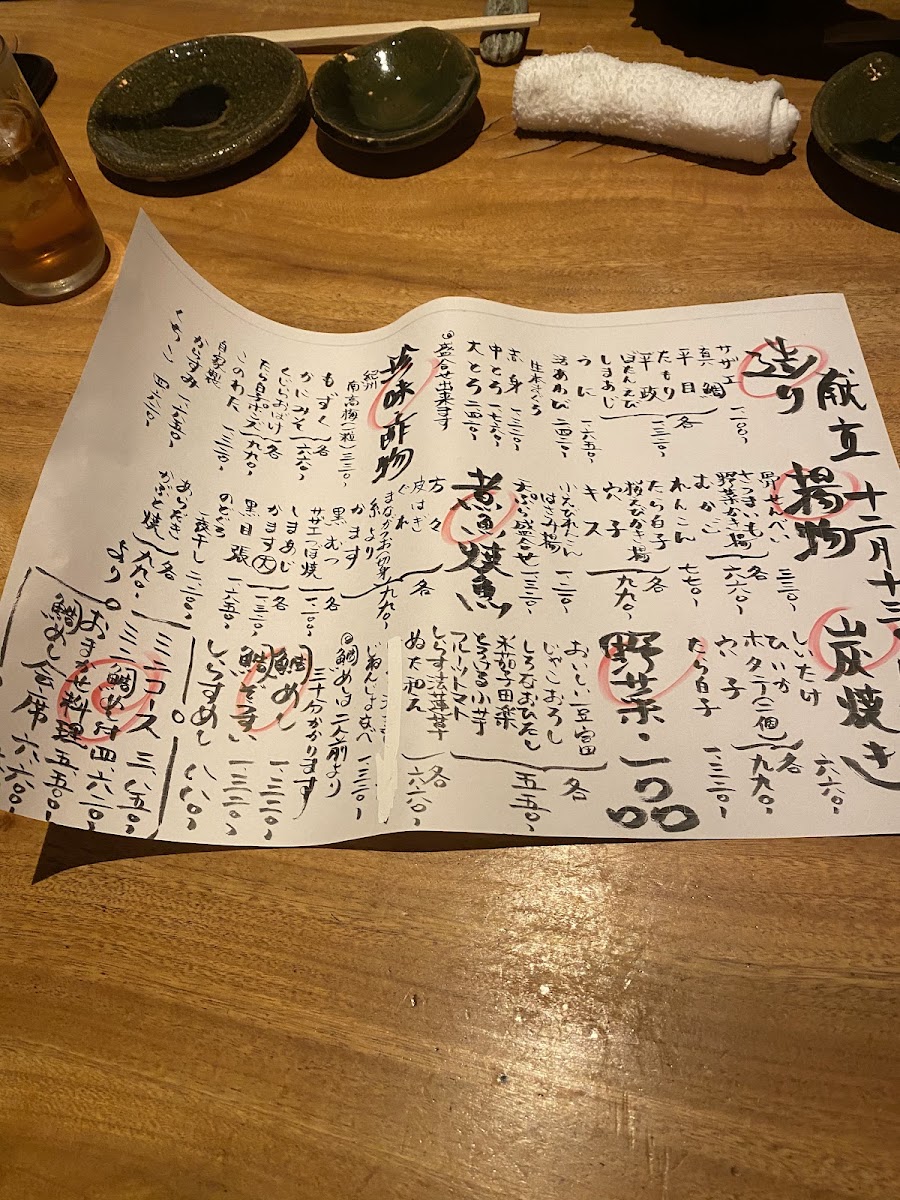 献立 十二月十三
造り
サザエ 一、一〇〇、
真鯛
平目
たもり
平政
ぼたんえび
しまあじ
各 一、三二〇、
うに 一、六五〇、
活あわび 二、四二〇、
生本まぐろ
赤身 一、三二〇、
中とろ 一、七六〇、
大とろ 二、四二〇、
◎盛合せ出来ます
珍味・酢物
紀州
南高梅(一粒)三三〇、
もずく
かにみそ
各 六六〇、
くじらおばけ
たら白子ポン酢
各 九九〇、
このわた 一、三二〇、
自家製
からすみ 一、六五〇、
くちこ 四、六二〇、
揚物
野せんべい 三三〇、
さつまいも
野菜かき揚
むかご
各 六六〇、
れんこん
たら白子 七七〇、
桜えびかき揚
穴子
キス
各 九九〇、
小えびれんこん
はさみ揚 一、一〇〇、
天ぷら盛合せ 一、三二〇、
煮魚・焼魚
方々
皮はぎ
ぐれ
まながつお切身
糸より
かます
各 九九〇、
黒むつ
サザエつぼ焼
各 一、一〇〇、
しまあじ
かます大
黒目張
各 一、三二〇、
のどぐろ 一、六五〇、
一夜干し 二、二〇〇、
あらだき
かぶと焼
各 九九〇、
より。
炭焼き
しいたけ 六六〇、
ひいか
ホタテ(二個)
各 九九〇、
穴子
たら白子 一、三二〇、
野菜・一品
おいしい豆富
じゃこおろし
しろなおひたし
米茄子田楽
とろける小芋
フルーツトマト
各 五五〇、
しらす法蓮草
ぬた和え
各 六六〇、
じねんじょ 一、三二〇、
◎鯛めしは二人前より
三十分かかります
鯛めし 一、三二〇、
鯛ぞうすい 一、三二〇、
しらすめし 八八〇、
ミニコース 三、八五〇、
ミニ鯛めし付 四、六二〇、
おまかせ料理 五、五〇〇、
鯛めし会席 六、六〇〇、